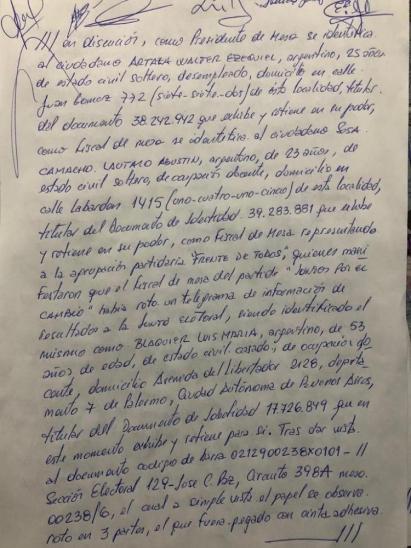 /// en discusión, como Presidente de Mesa se identifica
al ciudadano ARTAZA WALTER EZEQUIEL, argentino, 25 años
de estado civil soltero, desempleado, domicilio en calle
Juan Gomez 772 (siete-siete-dos) de ésta localidad, titular
del documento 38.242.942 que exhibe y retiene en su poder,
como Fiscal de mesa se identifica al ciudadano SOSA
CAMACHO LAUTARO AGUSTIN, argentino, de 23 años, de
estado civil soltero, de ocupación docente, domicilio en
calle Labarden 1415 (uno-cuatro-uno-cinco) de esta localidad,
titular del Documento de Identidad 39.283.881 que exhibe
y retiene en su poder, como Fiscal de Mesa representando
a la agrupación partidaria "FRENTE DE TODOS", quienes mani
festaron que el fiscal de mesa del partido "JUNTOS POR EL
CAMBIO" había roto un telegrama de información de
resultados a la Junta Electoral, siendo identificado el
mismo como BLAQUIER LUIS MARIA, argentino, de 53
años de edad, de estado civil casado, de ocupación do
cente, domicilio Avenida del Libertador 2128, departa
mento 7 de Palermo, Ciudad Autónoma de Buenos Aires,
titular del Documento de Identidad 17.726.849 que en
este momento exhibe y retiene para si. Tras dar vista
al documento codigo de barra 0212900238X0101-//
Sección Electoral 129-Jose C. Paz, Circuito 398A mesa
00238/6, el cual a simple vista el papel se observa
roto en 3 partes, el que fuera pegado con cinta adhesiva
///